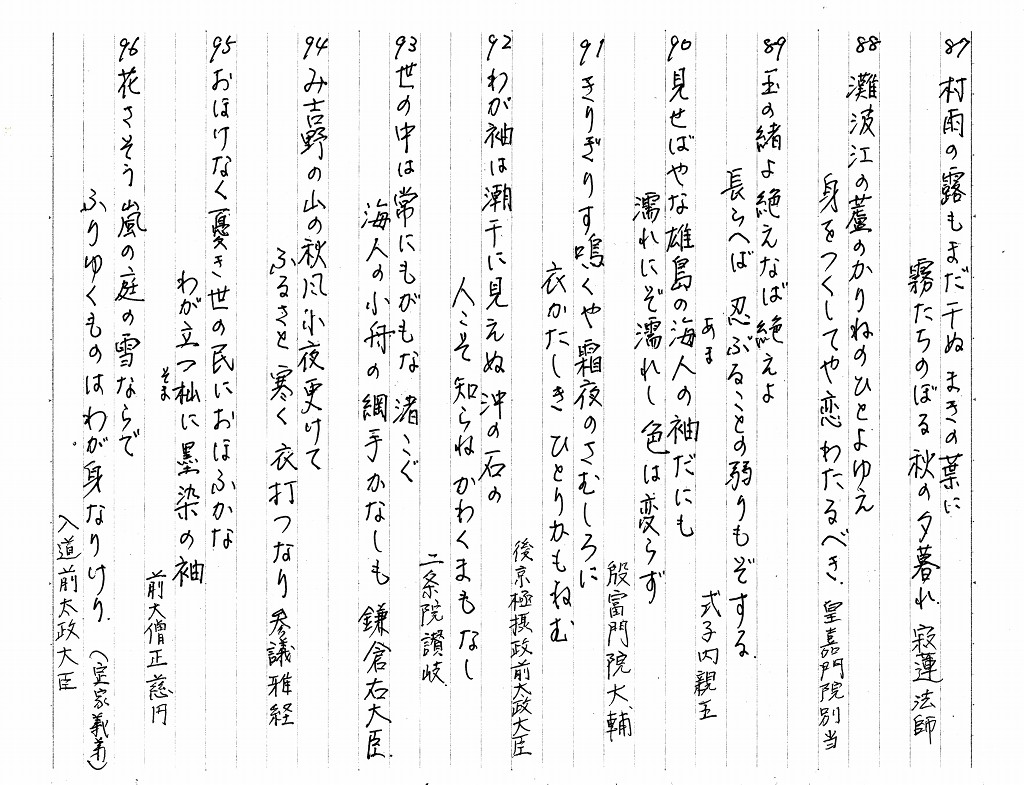 87 村雨の露もまだ干ぬまきの葉に
霧たちのぼる秋の夕暮れ 寂蓮法師
88 灘波江の蘆のかりねのひとよゆえ
身をつくしてや恋わたるべき 皇嘉門院別当
89 玉の緒よ絶えなば絶えよ
長らへば 忍ぶることの弱りもぞする
式子内親王
90 見せばやな雄島の海人の袖だにも
あま
濡れにぞ濡れし色は変らず
殷富門院大輔
91 きりぎりす鳴くや霜夜のさむしろに
衣かたしきひとりかもねむ
後京極摂政前太政大臣
92 わが袖は潮干に見えぬ沖の石の
人こそ知らねかわくまもなし
二条院讃岐
93 世の中は常にもがもな渚こぐ
海人の小舟の綱手かなしも 鎌倉右大臣
94 み吉野の山の秋風小夜更けて
ふるさと寒く衣打つなり 参議雅経
95 おほけなく憂き世の民におほふかな
わが立つ杣に墨染の袖
そま
前大僧正慈円
96 花さそう嵐の庭の雪ならで
ふりゆくものはわが身なりけり (定家義弟)
入道前太政大臣